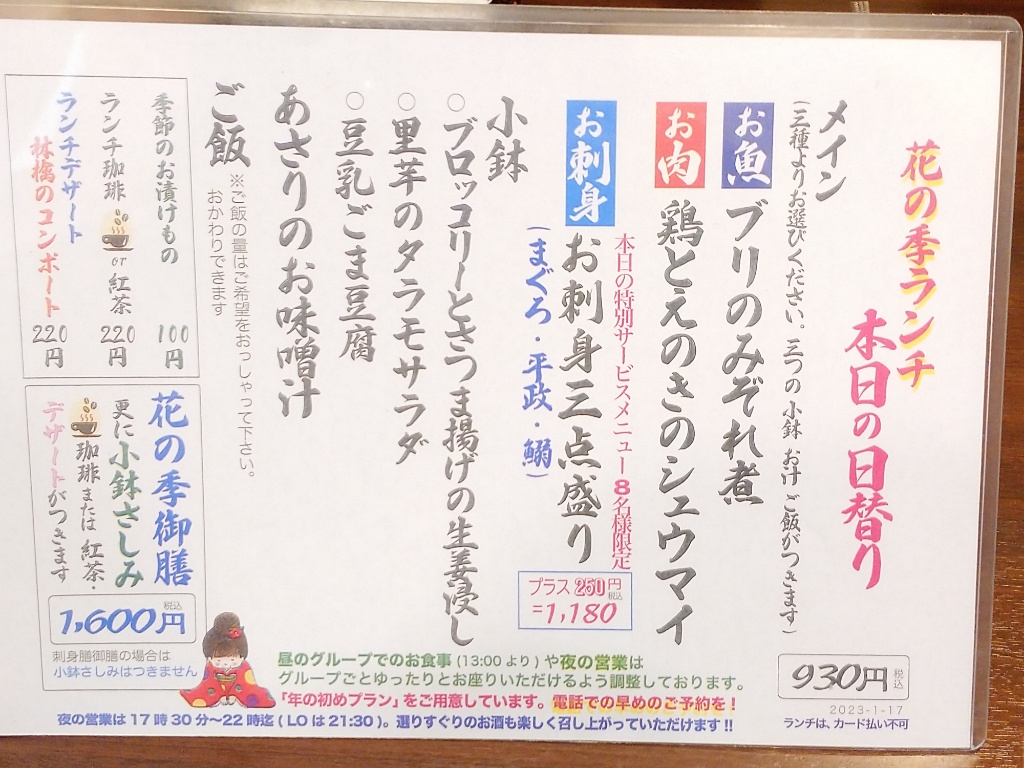 花の季ランチ
本日の日替り
メイン
(三種よりお選びください。三つの小鉢 お汁 ご飯がつきます)
お魚 ブリのみぞれ煮
お肉 鶏とえのきのシュウマイ
本日の特別サービスメニュー8名様限定
お刺身 お刺身三点盛り
(まぐろ・平政・鰯)
プラス250円税込
=1,180
小鉢
○ブロッコリーとさつま揚げの生姜浸し
○里芋のタラモサラダ
○豆乳ごま豆腐
あさりのお味噌汁
ご飯
※ご飯の量はご希望をおっしゃって下さい。
おかわりできます
930円税込
2023-1-17
ランチは、カード払い不可
季節のお漬けもの 100円
ランチ珈琲 or 紅茶 220円
ランチデザート
林檎のコンポート 220円
花の季御膳
更に小鉢さしみ
珈琲または紅茶・
デザートがつきます
1,600円税込
刺身膳御膳の場合は
小鉢さしみはつきません
昼のグループでのお食事(13:00より)や夜の営業は
グループごとゆったりとお座りいただけるよう調整しております。
「年の初めプラン」をご用意しています。電話での早めのご予約を!
夜の営業は17時30分〜22時迄(LOは21:30)。選りすぐりのお酒も楽しく召し上がっていただけます!!